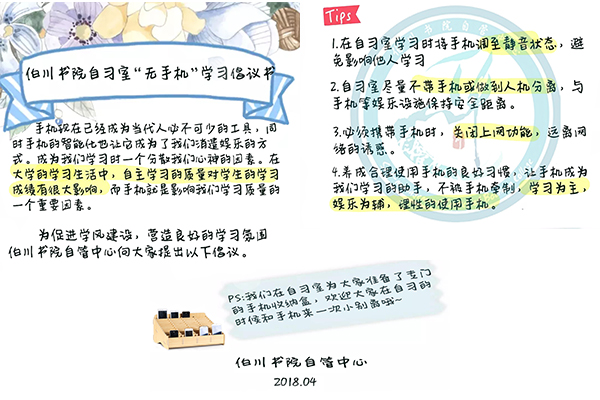 伯川书院自习室“无手机”学习倡议书
手机现在已经成为当代人必不可少的工具，同
时手机的智能化也让它成为了我们消遣娱乐的方
式。成为我们学习时一个分散我们心神的因素。在
大学的学习生活中，自主学习的质量对学生的学习
成绩有很大影响，而手机就是影响我们学习质量的
一个重要因素。
为促进学风建设，营造良好的学习氛围
伯川书院自管中心向大家提出以下倡议。
Tips
1.在自习室学习时将手机调至静音状态，避
免影响他人学习
2.自习室尽量不带手机或做到人机分离，与
手机等娱乐设施保持安全距离。
3.必须携带手机时，关闭上网功能，远离网
络的诱惑。
4.养成合理使用手机的良好习惯，让手机成为
我们学习的助手，不被手机牵制，学习为主，
娱乐为辅，理性的使用手机。
PS:我们在自习室为大家准备了专门
的手机收纳盒，欢迎大家在自习的
时候和手机来一次小别离哦~
伯川书院自管中心
2018.04